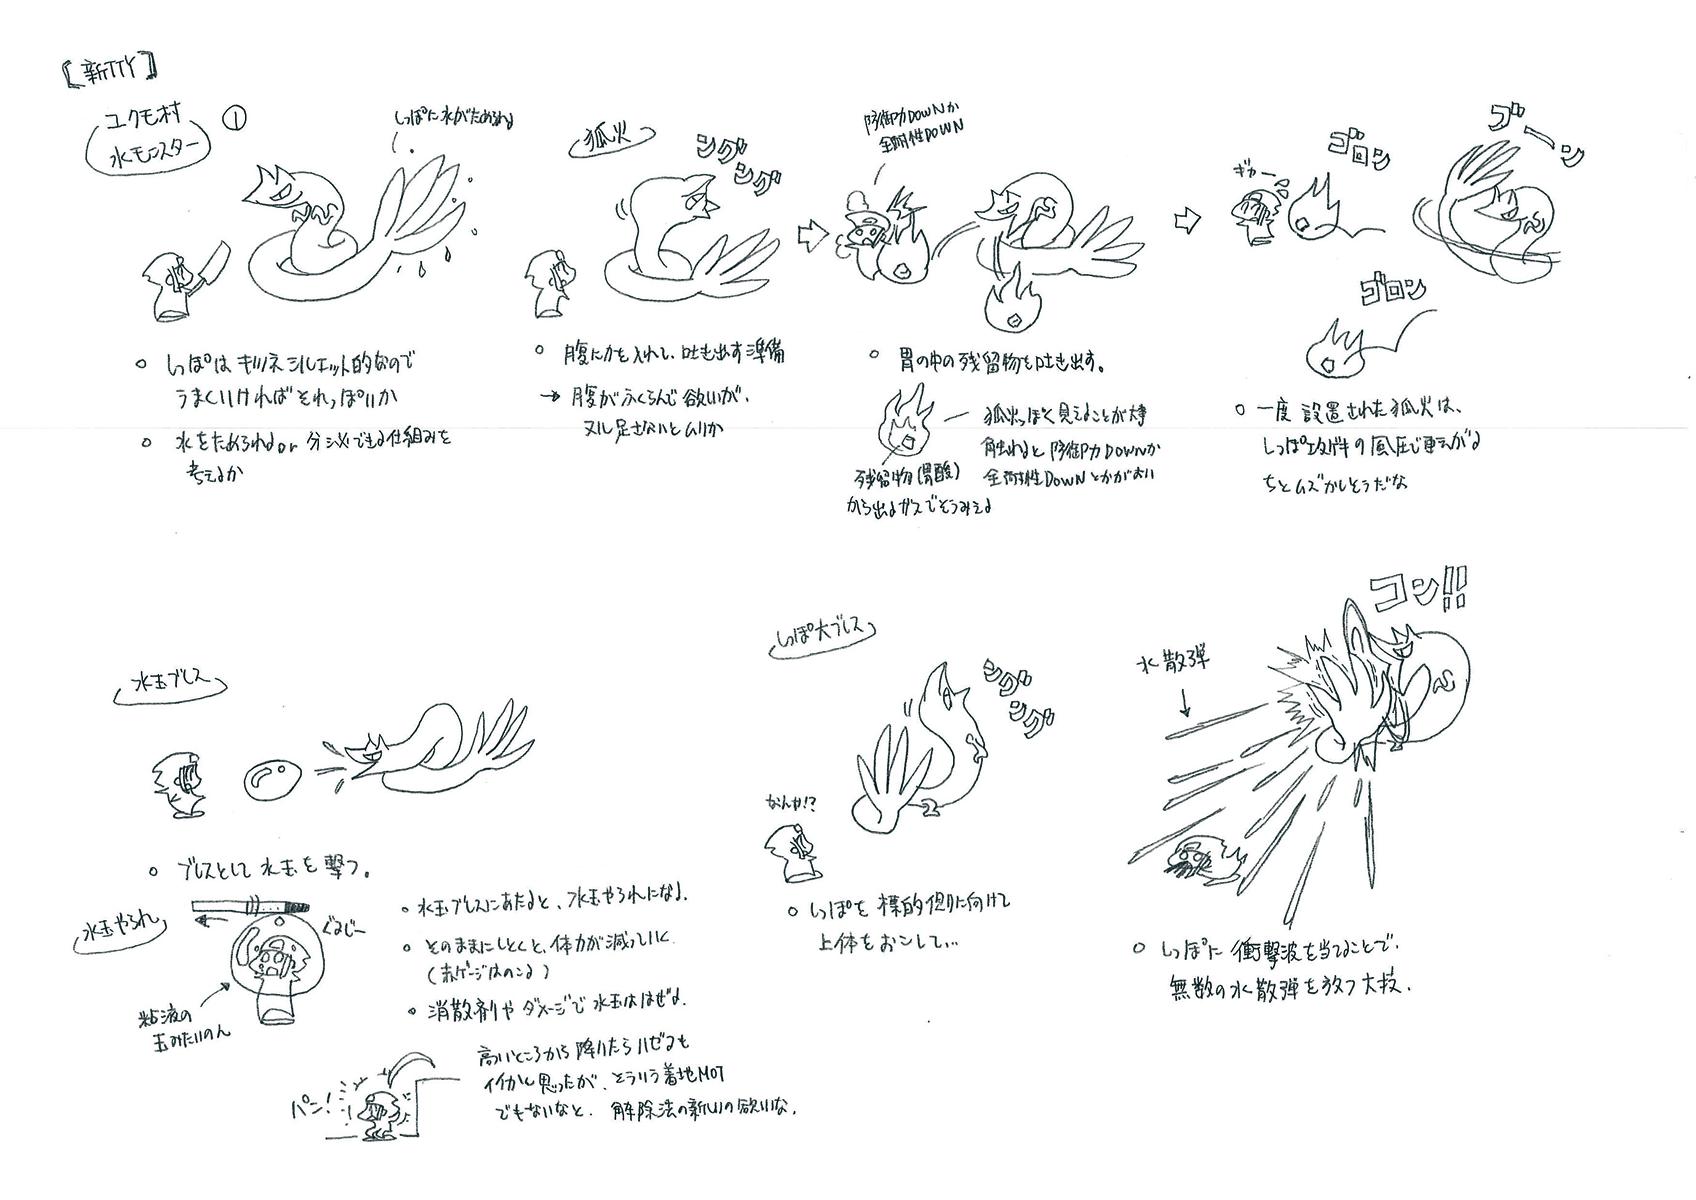 【新TTY】
ユクモ村
水モンスター
①
しっぽに水がためられる
狐火
ングング
防御力DOWNか
全耐性DOWN
ギャー
ゴロン
ブーン
ゴロン
○ しっぽはキツネシルエット的なので
うまくいければそれっぽいか
○ 水をためられるor分泌できる仕組みを
考えるか
○ 腹に力を入れて、吐き出す準備
→ 腹がふくらんで欲いが、
ヌル足さないとムリか
○ 胃の中の残留物を吐き出す。
狐火っぽく見えることが大事
触れると防御力DOWNか
全耐性DOWNとかがおい
残留物(胃酸)
から出るガスでそうみえる
○ 一度設置された狐火は、
しっぽ攻撃の風圧で転がる
ちとムズかしそうだな
水玉ブレス
○ ブレスとして水玉を撃つ。
水玉やられ
ぐるじー
粘液の
玉みたいのん
・水玉ブレスにあたると、水玉やられになる。
・そのままにしとくと、体力が減っていく
(赤ゲージはのこる)
・消散剤やダメージで水玉ははぜる。
パン!
高いところから降りたらハゼるも
イイかと思ったが、そういう着地MOT
でもないなと。解除法の新しいの欲しいな。
しっぽ大ブレス
ングング
なんか!?
○ しっぽを標的側に向けて
上体をおこして…
コン!!
水散弾
○ しっぽに衝撃波を当てることで、
無数の水散弾を放つ大技.